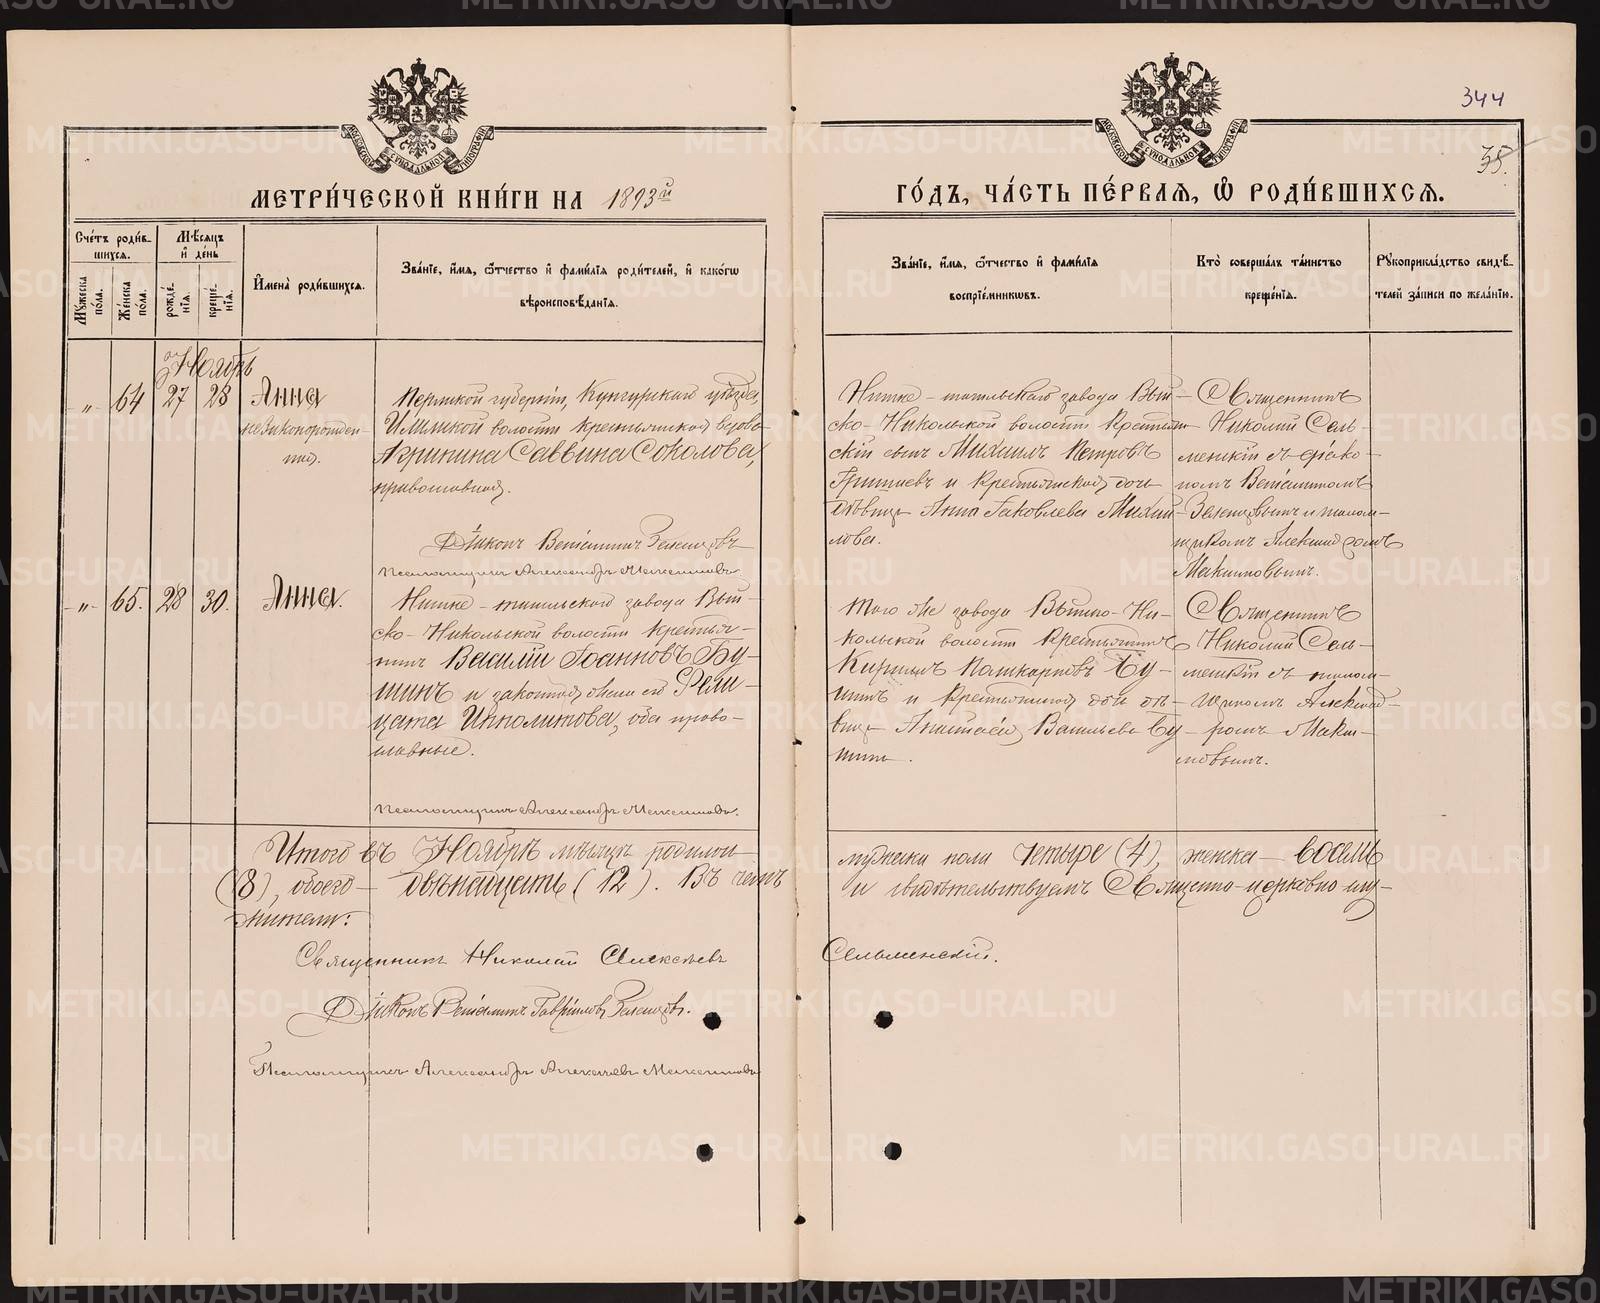 344
35.
МЕТРИЧЕСКОЙ КНИГИ НА 1893й
ГОДЪ, ЧАСТЬ ПЕРВАЯ, Ѿ РОДИВШИХСЯ.
МОСКОВСКОЙ СѴНОДАЛЬНОЙ ТИПОГРАФІИ
МОСКОВСКОЙ СѴНОДАЛЬНОЙ ТИПОГРАФІИ
Счетъ родив-
шихся.
Мужеска пола.
Женска пола.
Мѣсяцъ
и день
рожде-
нія.
креще-
нія.
Имена родившихся.
Званіе, имя, ѿчество и фамилія родителей, и какогѡ
вѣроисповѣданія.
Званіе, имя, ѿчество и фамилія
воспріемниковъ.
Кто совершалъ таинство
крещенія.
Рукоприкладство свидѣ-
телей записи по желанію.
Ноябрь
-"- 64 27 28 Анна
незаконорожден-
ная.
Пермской губерніи, Кунгурскаго уѣзда,
волости крестьянская вдова
Агрипина Саввина Соколова,
православная.
Діаконъ Веніаминъ
Псаломщикъ Александръ Максимовъ
Нижне-тагильскаго завода Вый-
ско-Никольской волости Крестьян-
скій сынъ Михаилъ Петровъ
и Крестьянская дочь
дѣвица Анна Іаковлева Михай-
лова.
Священникъ
Николай Сель-
менскій съ діако-
номъ Веніаминомъ
и псалом-
щикомъ Александромъ
Максимовымъ.
-"- 65. 28 30. Анна.
Нижне-тагильскаго завода Вый-
ско-Никольской волости Крестья-
нинъ Василій Іоанновъ Бу-
шинъ и законная жена его Фели-
цата Ипполитова, оба право-
славные.
Псаломщикъ Александръ Максимовъ.
Того же завода Выйско-Ни-
кольской волости Крестьянинъ
Кириллъ Бу-
шинъ и Крестьянская дочь дѣ-
вица Анастасія Васильева Бу-
шина.
Священникъ
Николай Сель-
менскій съ псалом-
щикомъ Александ-
ромъ Макси-
мовымъ.
Итого въ Ноябрѣ мѣсяцѣ родилось
мужеска пола четыре (4), женска - восемь
(8), обоего - двѣнадцать (12). Въ чемъ
и свидѣтельствуемъ Священно-церковно-слу-
жители:
Священникъ Николай Алексѣевъ
Сельменскій.
Діаконъ Веніаминъ Гавріиловъ
Псаломщикъ Александръ Алексѣевъ Максимовъ
METRIKI.GASO-URAL.RU